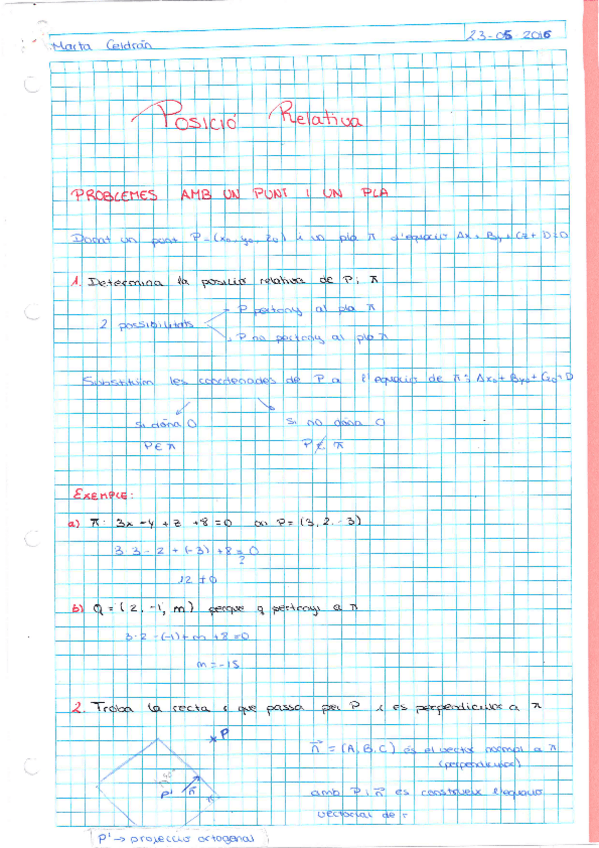 Marta Celdrán
23-05 2016
Posició Relativa
PROBLEMES AMB UN PUNT I UN PLA
Donat un punt P=(x₀, y₀, z₀) i un pla π d'equació Ax + By + Cz + D=0
1. Determina la posició relativa de P i π
P pertany al pla π
2 possibilitats
P no pertany al pla π
Substituïm les coordenades de P a l'equació de π: Ax₀ + By₀ + Cz₀ + D
si dóna 0
si no dóna 0
P∈π
P∉π
EXEMPLE:
a) π: 3x -y + z +8 =0 P= (3, 2, -3)
3·3 - 2 + (-3) +8 = 0
?
12 ≠ 0
b) Q = (2, -1, m) perque q pertanyi a π
3·2 -(-1)+m +8 =0
m = -15
2. Troba la recta r que passa per P i és perpendicular a π
P
n⃗ = (A, B, C) és el vector normal a π
(perpendicular)
P' n⃗ π
amb P i n⃗ es construeix l'equació
vectorial de r
P' → projecció ortogonal